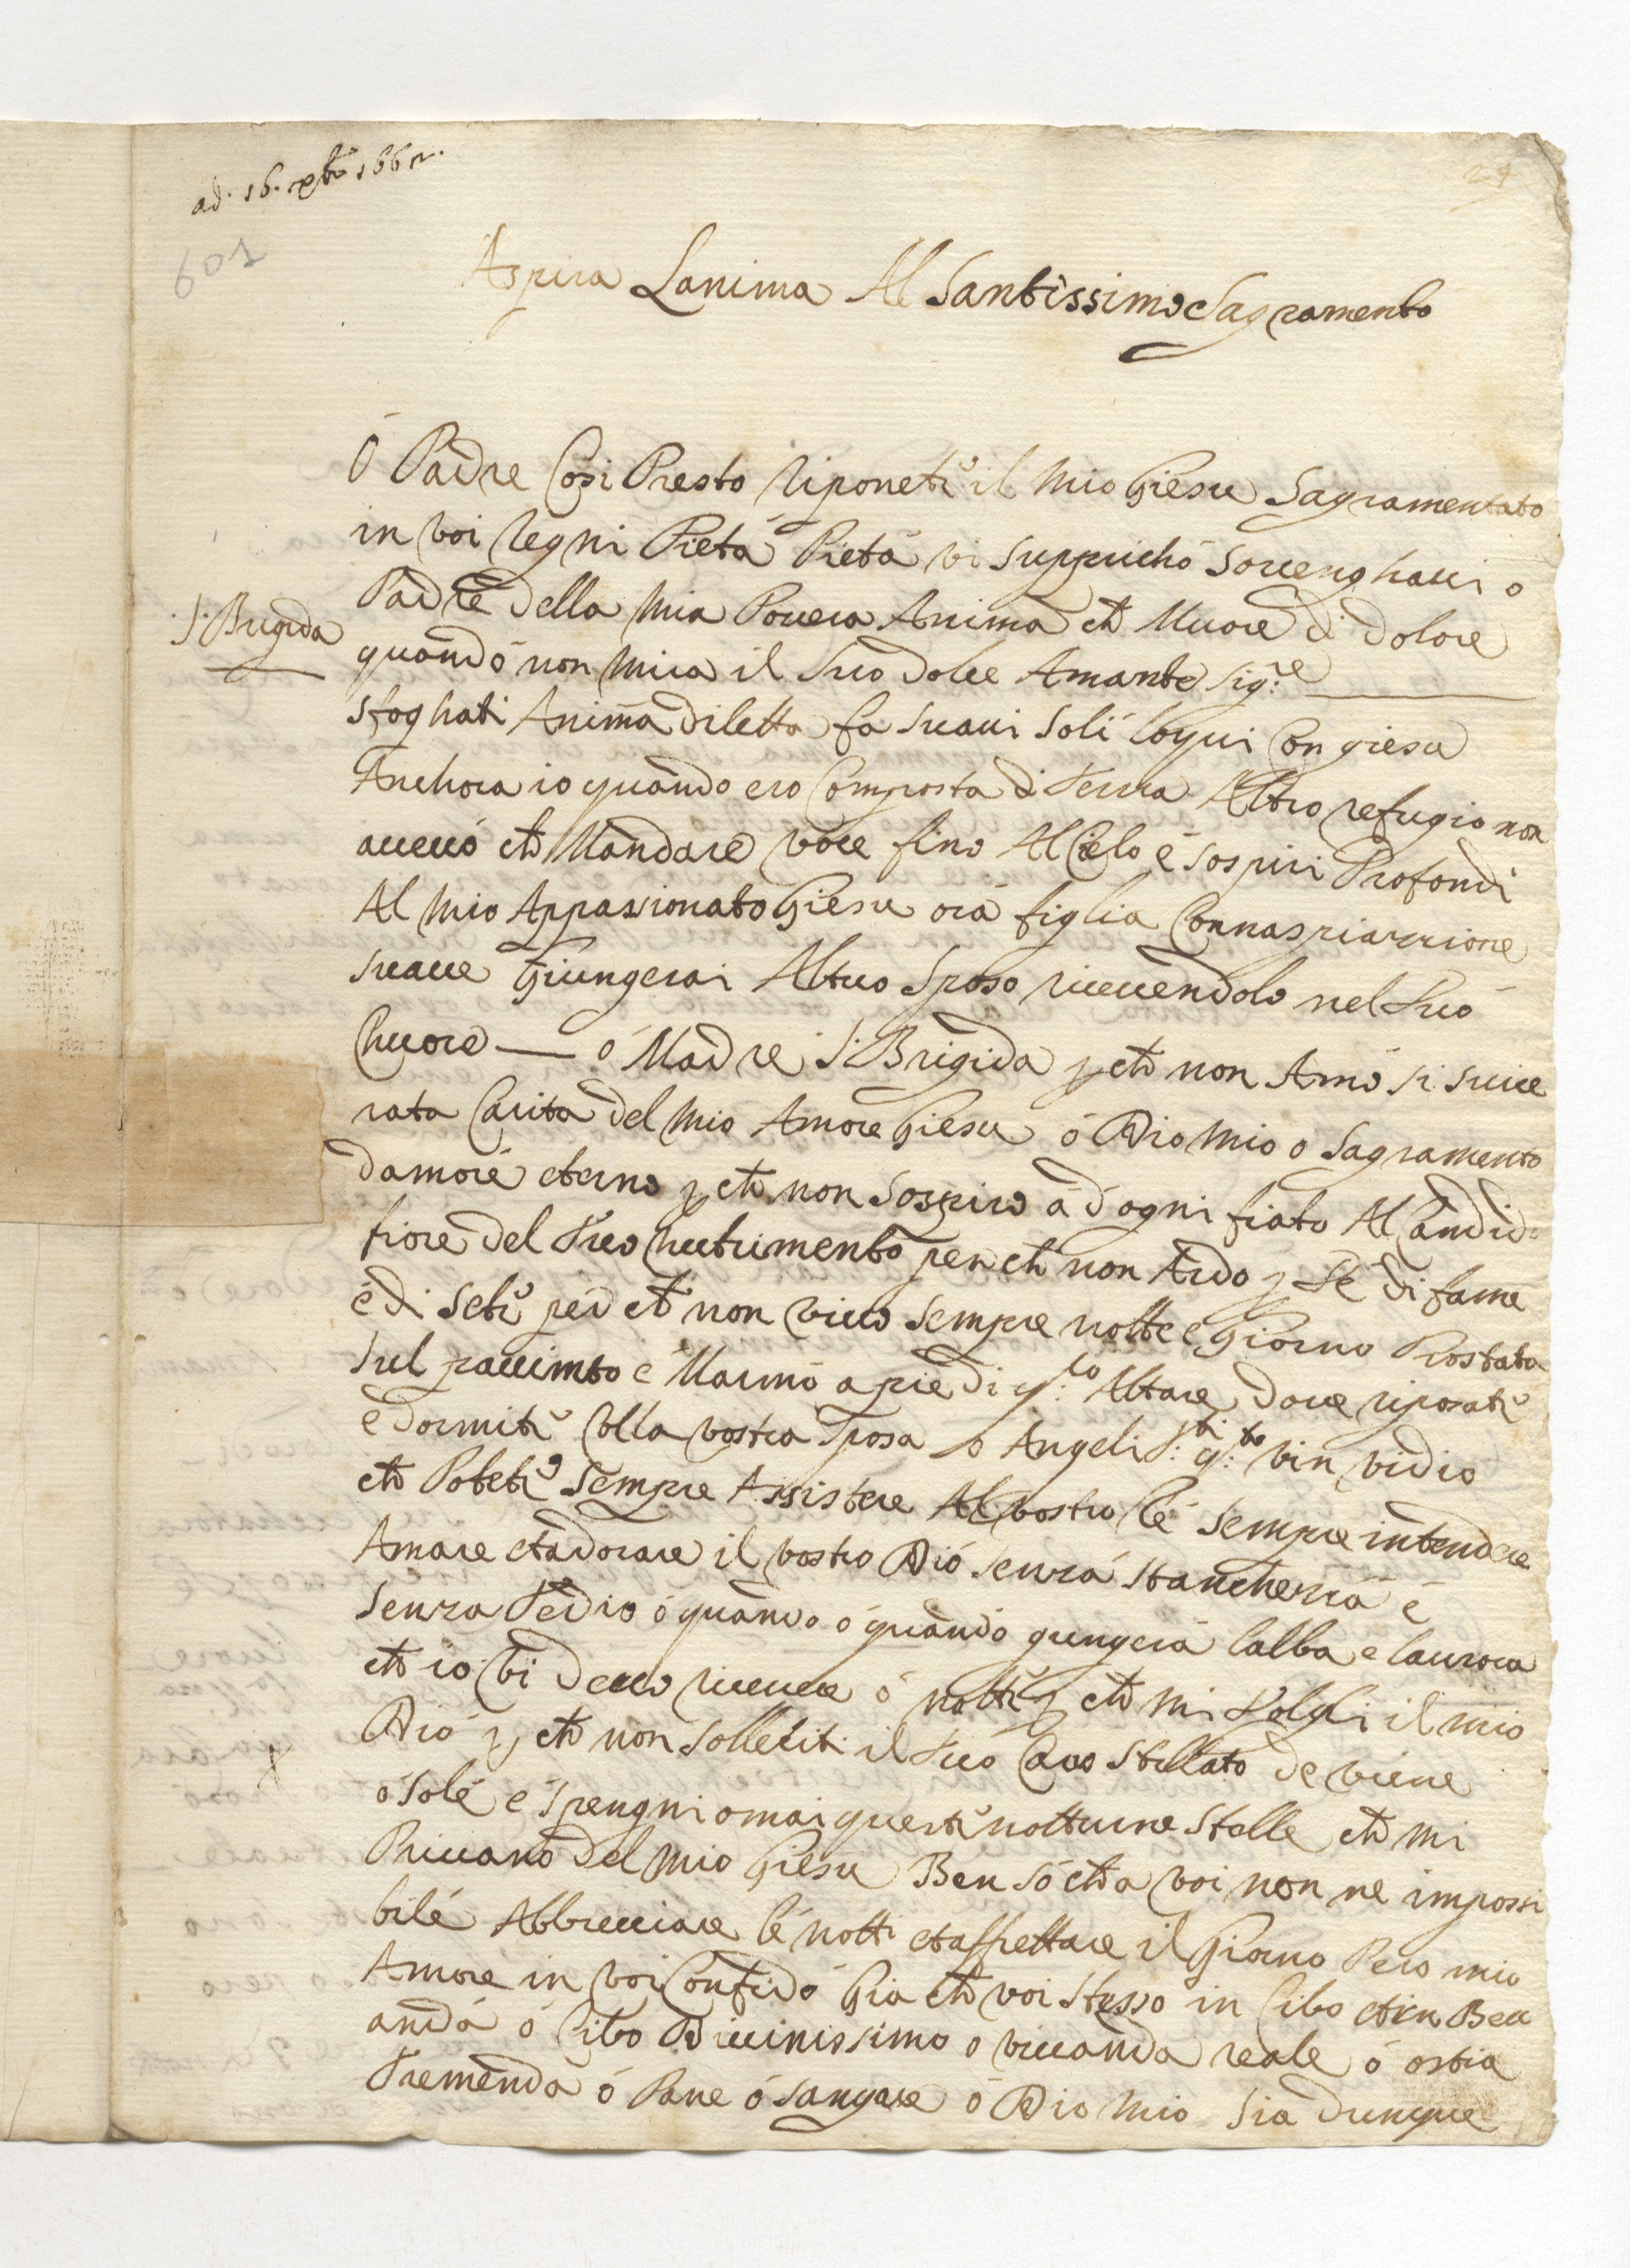 ad. 16. xbre 1662.
601
29
Aspira Lanima Al Santissimo Sagramento
Ó Padre Cosi Presto riponeti il mio Giesu Sagramentato
in voi regni Pietá Pietá vi supprichó Souenghaui o
Padre della mia Pouera Anima che Muore di dolore
S. Brigida
quandó non mira il suo dolce Amante sig.re
sfoghati Anima diletta fa suaui soli loqui Con giesu
Anchora io quando ero Composta di terra Altro refugio non
aueuó che Mandare voce fino Al Cielo é sospiri Profondi
Al mio Appassionato Giesu orá figlia Connaspiarzione
suaue Giungerai Altuo Sposo riceuendolo nel tuó
Chuore — ó Madre S. Brigida p che non Amó si suice
rata Carita del mio Amore Giesu ó Dio mio o Sagramento
damoré eterno p che non sospiro á d ogni fiato Al Candido
fiore del tuo nutrimento per che non Ardo p te di fame
é di seti per che non viuo sempre notte e Giorno Prostata
sul pauimto é Marmó a pie di q.to Altare doue riposati
é dormiti colla vostra sposa o Angeli S.ti q.to vin vidio
che Poteti sempre Assistere Al vostro Ré sempre intendere
Amare et adorare il vostro Dió senzá stancherzá é
senza tedio ó quando ó quandó gungerá lalba e laurora
che io vi deuo riceuere ó notti p che mi tolghi il mio
Dió p che non solleciti il tuó Caro stellato de viene
ó solé é spengni omai questi notturne stelle che mi
Priuanó del mio Giesu Ben só che a voi non ne impossi
bilé Abbreuiare lé notti et affrettare il Giorno Pero mio
Amore in voi Confidó Gia che voi stesso in Cibo et in Beu
andá ó Cibo Diuinissimo o viuanda reale ó ostia
Tremendá ó Pane ó sangue ó Dio mio sia dunque